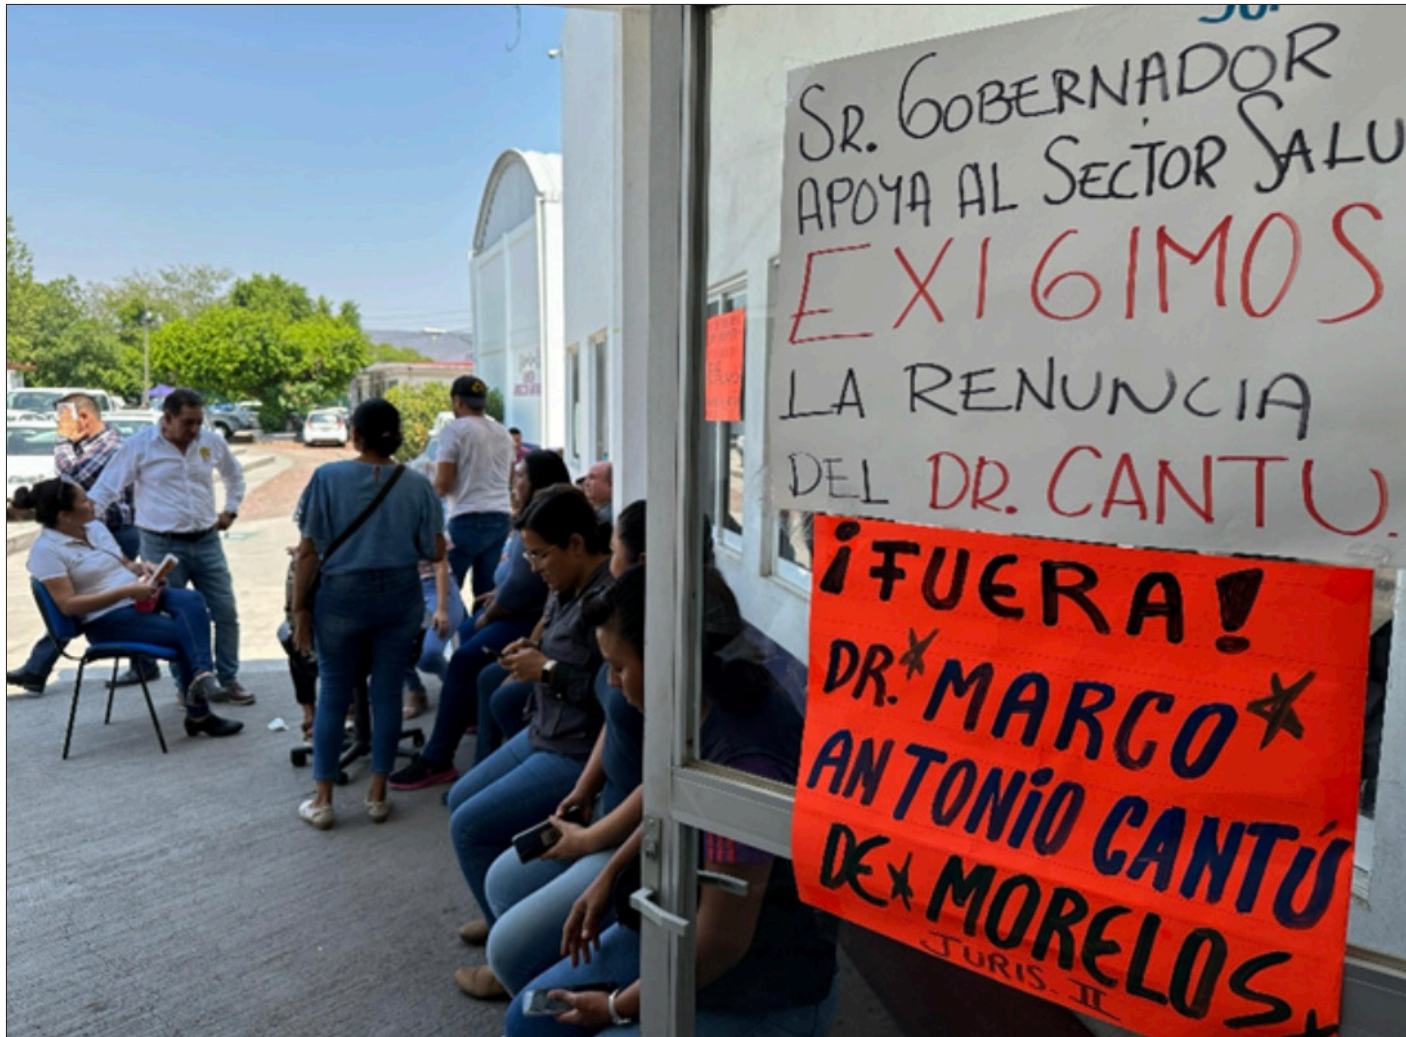 SR. GOBERNADOR
APOYA AL SECTOR SALU
EXIGIMOS
LA RENUNCIA
DEL DR. CANTU.
¡FUERA!
DR. MARCO
ANTONIO CANTÚ
DE MORELOS
JURIS. II